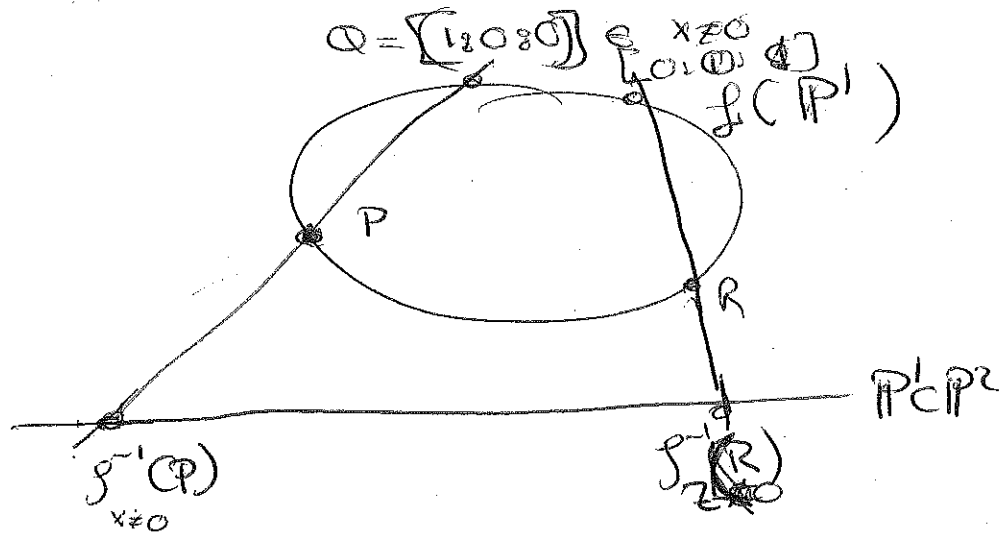 Q = [1:0:0]
x≠0
[0:0:1]
f(ℙ¹)
P
R
ℙ¹⊂ℙ²
f⁻¹(P)
x≠0
f⁻¹(R)